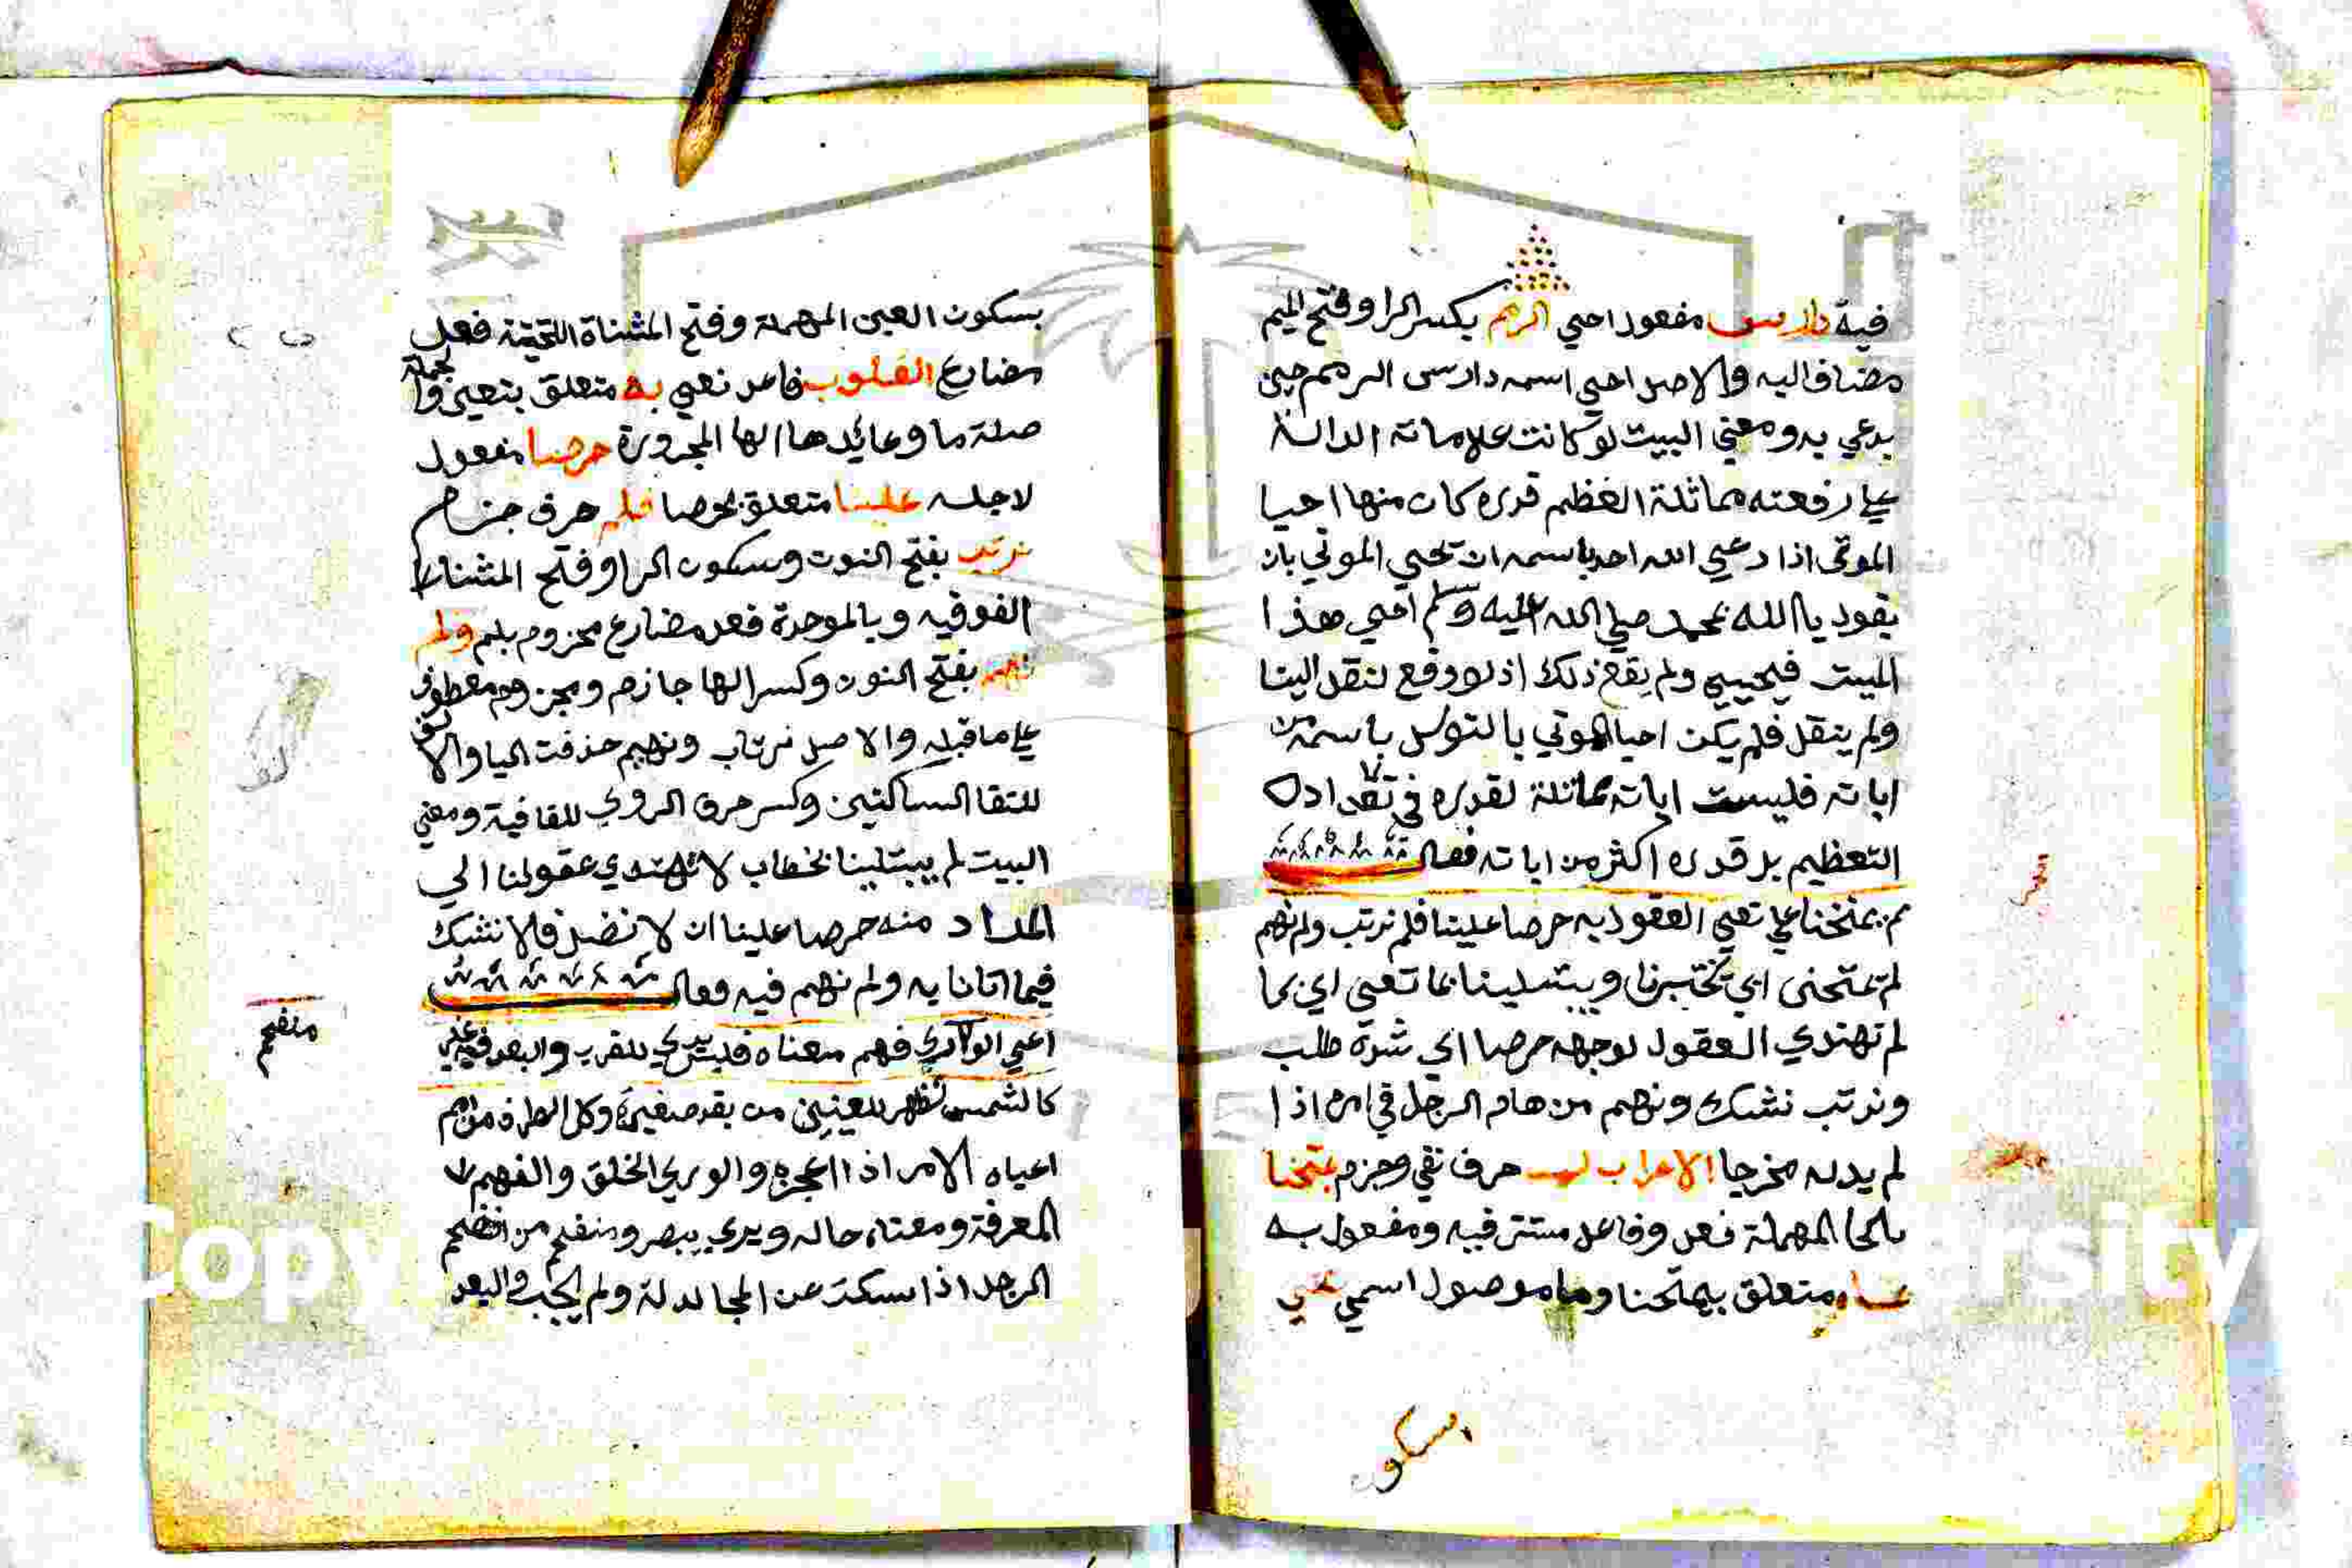 فيه دارس مفعول احيي الرمم بكسر الرا وفتح الميم
مضاف اليه والاصل احيي اسمه دارس الرمم حين
يدعي به ومعني البيت لو كانت علاماته الدالة
علي رفعته مماثلة العظم قدره كان منها احيا
الموتي اذا دعي الله احد باسمه ان تحيي الموتي بان
يقول يا الله بمحمد صلي الله عليه وسلم احيي هذا
الميت فيحييي ولم يقع ذلك اذ لو وقع لنقل الينا
ولم ينقل فلم يكن احيا الموتي بالتوسل باسمه من
اياته فليست اياته مماثلة لقدره في
التعظيم بل قدره اكثر من اياته فقال
لم يمتحنا بما تعيي العقول به حرصا علينا فلم نرتب ولم نهم
لم يمتحنى اي تختبرنا ويبتلينا بما تعيي اي بما
لم تهتدي العقول لوجهه حرصا اي شدة طلب
ونرتب نشك ونهم من هام الرجل في امره اذا
لم يدله مخرجا الاعراب لم حرف نفي وجزم يمتحنا
بالحا المهملة فعل وفاعل مستتر فيه ومفعول به
بما متعلق بيمتحنا وما موصول اسمي تعيي
بسكو
بسكون العين المهملة وفتح المثناة التحتية فعل
مضارع العقول فاعل تعيي به متعلق بتعيي والجملة
صلة ما وعايدها الها المجرورة حرصا مفعول
لاجله علينا متعلق بحرصا فلم حرف جزم
نرتب بفتح النون وسكون الرا وفتح المثناة
الفوقيه وبالموحدة فعل مضارع مجزوم بلم ولم
نهم بفتح النون وكسر الها جازم ومجزوم معطوف
علي ما قبله والاصل نرتاب ونهيم حذفت اليا والالف
للتقا الساكنين وكسر حرف الروي للقافية ومعني
البيت لم يبتلينا بخطاب لا تهتدي عقولنا الي
المراد منه حرصا علينا ان لا نضل فلا نشك
فيما اتانا به ولم نهم فيه فقال
اعيي الوري فهم معناه فليس يري للقرب والبعد فيه غير
منفحم
كالشمس تظهر للعينين من بعد صغيرة وتكل الطرف من امم
اعياه الامر اذا اعجزه والوري الخلق والفهم
المعرفة ومعناه حاله ويري يبصر ومنفحم من افحم
الرجل اذا سكت عن المجادلة ولم يجب والبعد